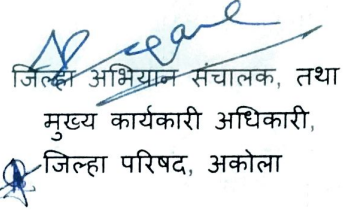 जिल्हा अभियान संचालक, तथा
मुख्य कार्यकारी अधिकारी,
जिल्हा परिषद, अकोला